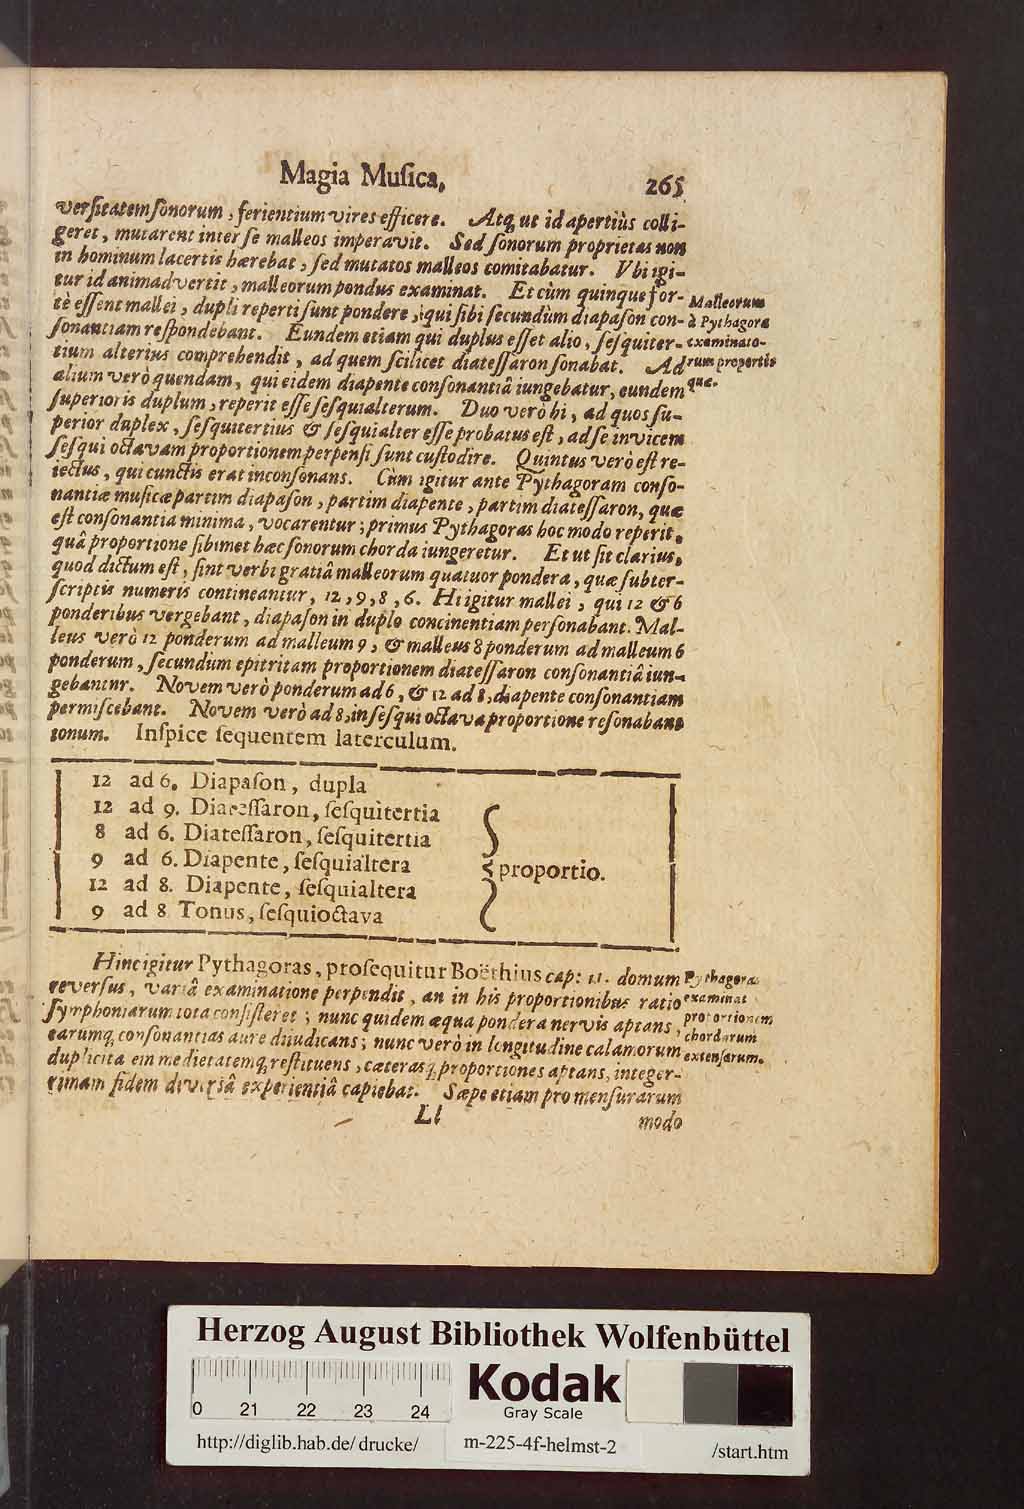 Magia Muſica, 265
verſitatem ſonorum, ferientium vires efficere. Atq; ut id apertiùs colli-
geret, mutarent inter ſe malleos imperavit. Sed ſonorum proprietas non
in hominum lacertis hærebat, ſed mutatos malleos comitabatur. Vbi igi-
tur id animadvertit, malleorum pondus examinat. Et cùm quinque for-
tè eſſent mallei, dupli reperti ſunt pondere, qui ſibi ſecundùm diapaſon con-
ſonantiam reſpondebant. Eundem etiam qui duplus eſſet alio, ſeſquiter-
tium alterius comprehendit, ad quem ſcilicet diateſſaron ſonabat. Ad
alium verò quendam, qui eidem diapente conſonantiâ iungebatur, eundem
ſuperioris duplum, reperit eſſe ſeſquialterum. Duo verò hi, ad quos ſu-
perior duplex, ſeſquitertius & ſeſquialter eſſe probatus eſt, ad ſe invicem
ſeſqui octavam proportionem perpenſi ſunt cuſtodire. Quintus verò eſt re-
iectus, qui cunctis erat inconſonans. Cùm igitur ante Pythagoram conſo-
nantiæ muſicæ partim diapaſon, partim diapente, partim diateſſaron, quæ
eſt conſonantia minima, vocarentur; primus Pythagoras hoc modo reperit,
quâ proportione ſibimet hæc ſonorum chorda iungeretur. Et ut ſit clarius,
quod dictum eſt, ſint verbi gratiâ malleorum quatuor pondera, quæ ſubter-
ſcriptis numeris contineantur, 12, 9, 8, 6. Hi igitur mallei, qui 12 & 6
ponderibus vergebant, diapaſon in duplo concinentiam perſonabant. Mal-
leus verò 12 ponderum ad malleum 9, & malleus 8 ponderum ad malleum 6
ponderum, ſecundùm epitritam proportionem diateſſaron conſonantiâ iun-
gebantur. Novem verò ponderum ad 6, & 12 ad 8, diapente conſonantiam
permiſcebant. Novem verò ad 8, in ſeſqui octava proportione reſonabant
tonum. Inſpice ſequentem laterculum.
Malleorum
à Pythagora
examinato-
rum proportio
quæ.
12 ad 6. Diapaſon, dupla
12 ad 9. Diateſſaron, ſeſquitertia
8 ad 6. Diateſſaron, ſeſquitertia
9 ad 6. Diapente, ſeſquialtera
12 ad 8. Diapente, ſeſquialtera
9 ad 8 Tonus, ſeſquioctava
proportio.
Hinc igitur Pythagoras, proſequitur Boëthius cap: 11. domum
reverſus, variâ examinatione perpendit, an in his proportionibus ratio
ſymphoniarum tota conſiſteret; nunc quidem æqua pondera nervis aptans,
earumq; conſonantias aure diiudicans; nunc verò in longitudine calamorum
duplicitatem medietatemq; reſtituens, cæterasq; proportiones aptans, integer-
rimam fidem diverſâ experientiâ capiebat. Sæpe etiam pro menſurarum
Pythagoras
examinat
proportionem
chordarum
extenſarum.
Ll modo
Herzog August Bibliothek Wolfenbüttel
0 21 22 23 24
Kodak
Gray Scale
http://diglib.hab.de/drucke/ m-225-4f-helmst-2 /start.htm